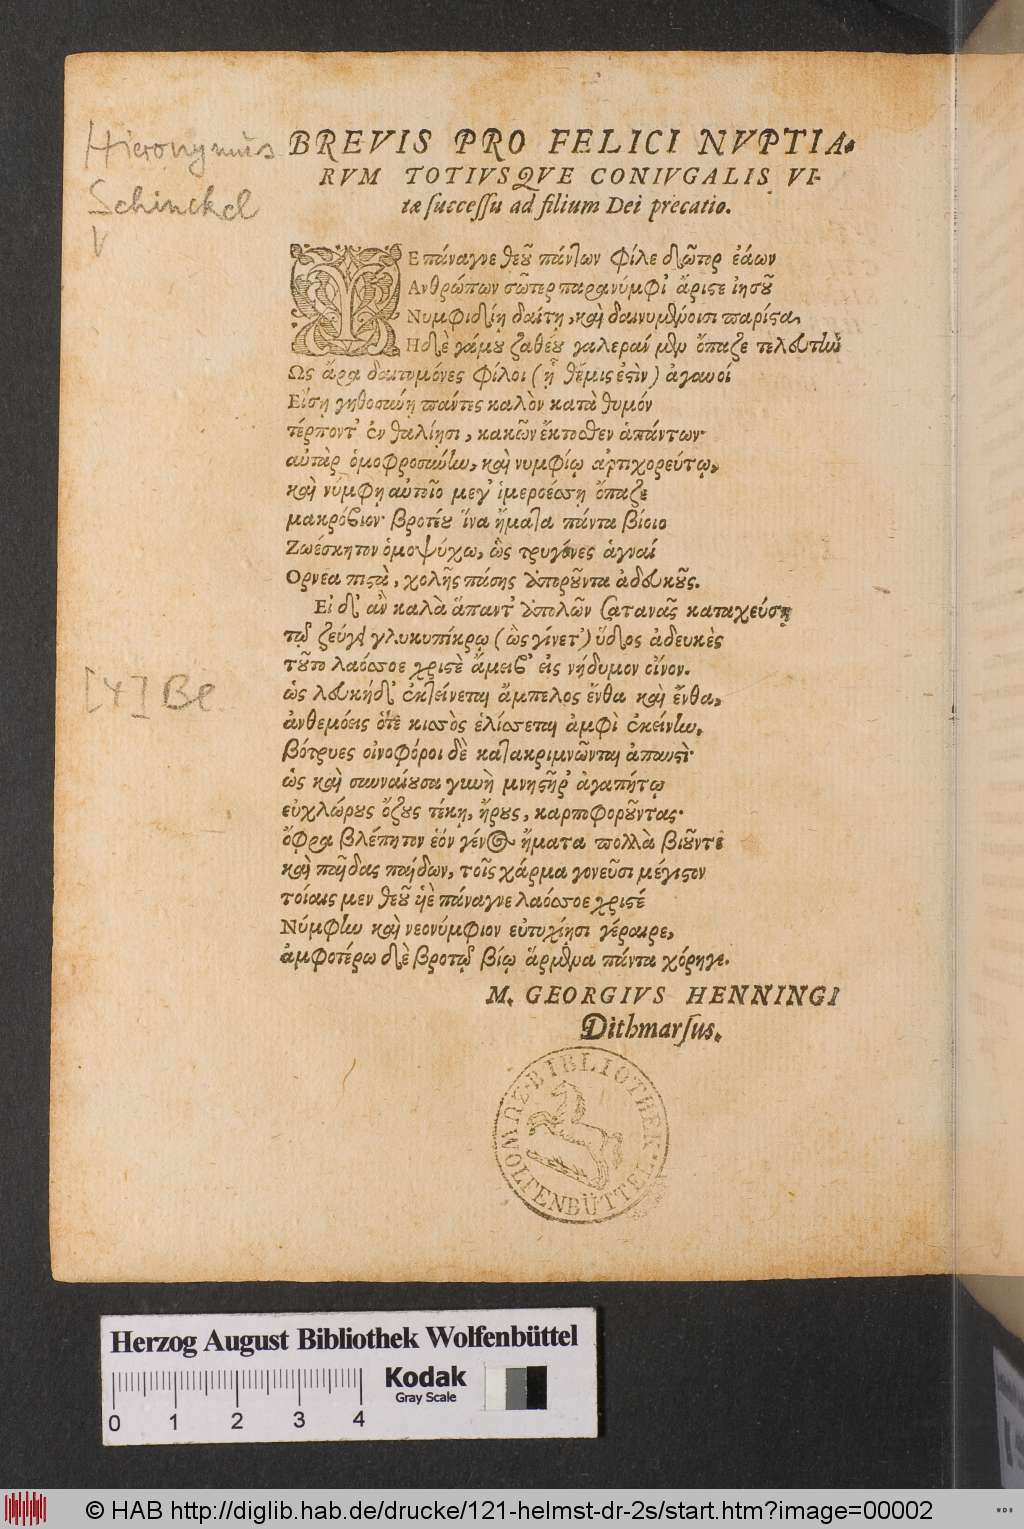 Hieronymus
Schinckel
BREVIS PRO FELICI NVPTIA-
RVM TOTIVSQVE CONIVGALIS VI-
tæ successu ad filium Dei precatio.
Υἱὲ πάναγνε θεοῦ πάντων φίλε δῶτορ ἐάων
Ἀνθρώπων σῶτερ παρανύμφι' ἄριστε ἰησοῦ
Νυμφιδίῃ δαίτῃ, καὶ δαινυμένοισι παρίστα,
Ἠδὲ γάμου ζαθέου γαλεραὶν μὲν ὄπαζε τελευτὼ
Ὡς ἄρα δαιτυμόνες φίλοι (ᾗ θέμις ἐστὶν) ἀγαυοί
Εἴσῃ γηθοσύνῃ πάντες καλὸν κατὰ θυμόν
τέρποντ' ἐν θαλίῃσι, κακῶν ἔκτοσθεν ἁπάντων·
αὐτὰρ ὁμοφροσύνην, καὶ νυμφίῳ ἀρτιχορεύτῳ,
καὶ νύμφῃ αὐτοῖο μεγ' ἱμεροέσσῃ ὄπαζε
μακρόβιον· βροτέου ἵνα ἤματα πάντα βίοιο
Ζωέσκητον ὁμοψύχω, ὣς τρυγόνες ἁγναί
Ορνέα πιστὰ, χολῆς πάσης ἀποροῦντα ἀδευκοῦς.
Εἰ δ' ἂν καλὰ ἅπαντ' ἀπολῶν Σατανᾶς καταχεύσῃ
τῷ ζεύγει γλυκυπίκρῳ (ὣς γίνετ') ὕδος ἀδευκὲς
τοῦτο λαόσσοε χριστὲ ἄμειβ' εἰς νήδυμον οἶνον.
ὡς ἐκτείνεται ἄμπελος ἔνθα καὶ ἔνθα,
ἀνθεμόεις ὅτε κισσὸς ἑλίσσεται ἀμφὶ ἐκείνην,
βότρυες οἰνοφόροι δὲ κατακριμνῶνται ἁπαυσὶ·
ὡς καὶ συνναίουσα γυνὴ μνηστῆρ' ἀγαπήτῳ
εὐχλώρους ὄζους τέκῃ, ἤρους, καρποφοροῦντας·
ὄφρα βλέπητον ἑόν γένος ἤματα πολλὰ βιοῦντε
καὶ παῖδας παίδων, τοῖς χάρμα γονεῦσι μέγιστον
τοίαις μεν θεοῦ ὑιὲ πάναγνε λαόσσοε χριστέ
Νύμφην καὶ νεονύμφιον εὐτυχίῃσι γέραιρε,
ἀμφοτέρω δὲ βροτῷ βίῳ ἅρμενα πάντα χόρηγει.
M. GEORGIVS HENNINGI
Dithmarsus.
[4] Be
BIBLIOTHEK ZU WOLFENBÜTTEL
Herzog August Bibliothek Wolfenbüttel
Kodak
Gray Scale
0 1 2 3 4
© HAB http://diglib.hab.de/drucke/121-helmst-dr-2s/start.htm?image=00002